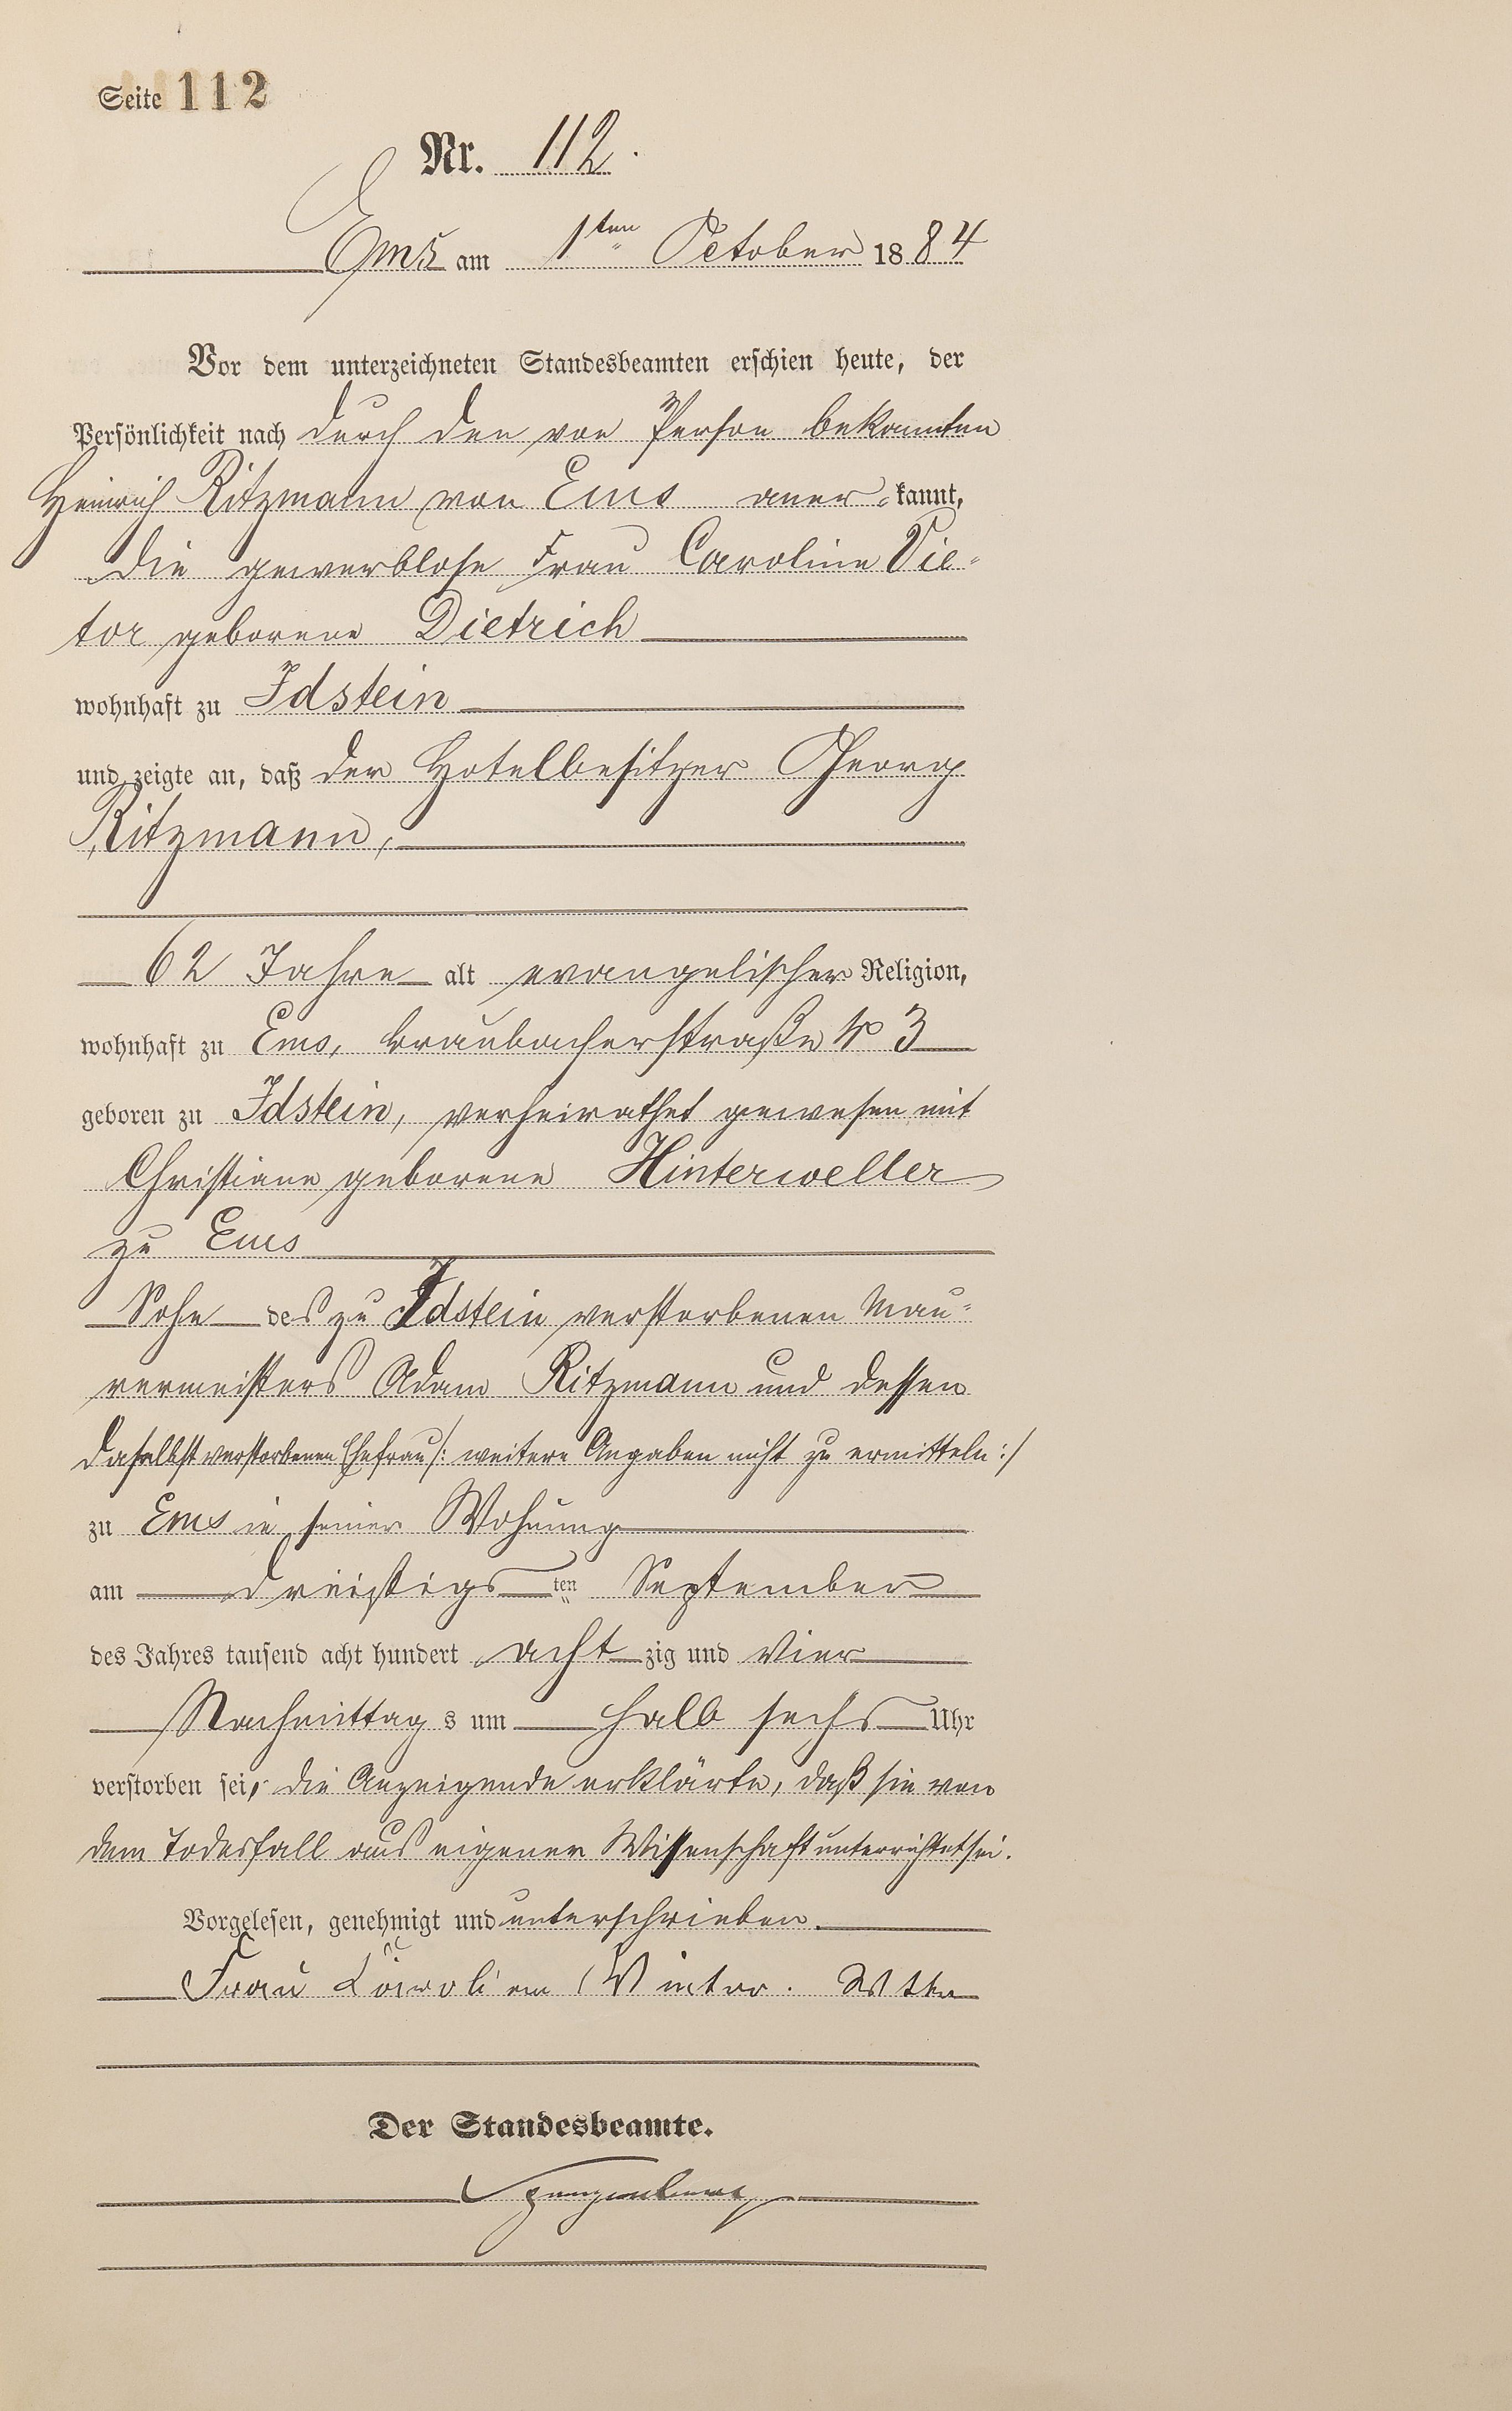 Seite 112
Nr. 112.
Ems am 1ten October 1884
Vor dem unterzeichneten Standesbeamten erschien heute, der
Persönlichkeit nach durch den von Person bekannten
Heinrich Ritzmann von Ems aner=kannt,
die gewerblose Frau Caroline Vie=
tor geborene Dietrich
wohnhaft zu Idstein
und zeigte an, daß der Hotelbesitzer Georg
Ritzmann,
62 Jahre alt evangelischer Religion,
wohnhaft zu Ems, Braubacherstraße No 3
geboren zu Idstein, verheirathet gewesen mit
Christiane geborene Hinterweller
zu Ems
Sohn des zu Idstein verstorbenen Mau=
rermeisters Adam Ritzmann und dessen
daselbst verstorbenen Ehefrau /: weitere Angaben nicht zu ermitteln :/
zu Ems in seiner Wohnung
am dreißigsten September
des Jahres tausend acht hundert achtzig und vier
Nachmittags um halb sechs Uhr
verstorben sei, die Anzeigende erklärte, daß sie von
dem Todesfall aus eigener Wissenschaft unterrichtet sei.
Vorgelesen, genehmigt und unterschrieben.
Frau
Der Standesbeamte.